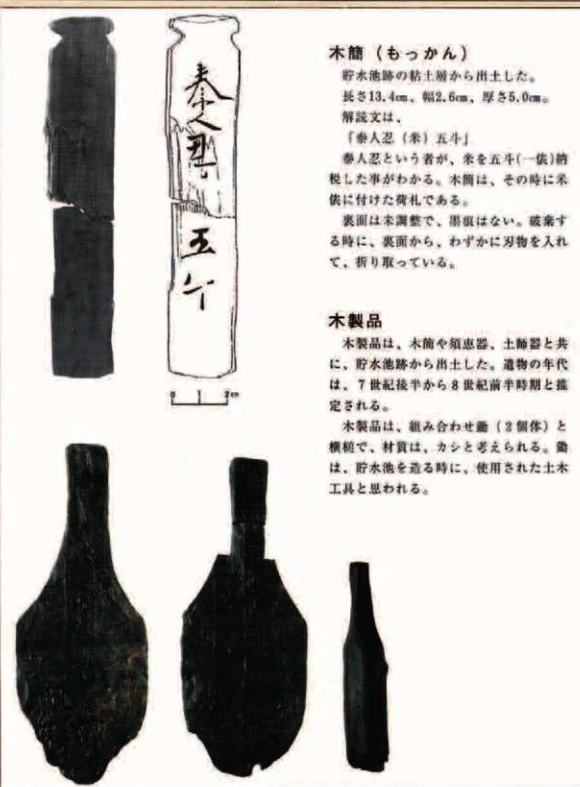 秦人忍
五斗
0 2cm
木簡（もっかん）
貯水池跡の粘土層から出土した。
長さ13.4㎝、幅2.6㎝、厚さ5.0㎝。
解読文は、
「秦人忍（米）五斗」
秦人忍という者が、米を五斗(一俵)納
税した事がわかる。木簡は、その時に米
俵に付けた荷札である。
裏面は未調整で、墨痕はない。破棄す
る時に、裏面から、わずかに刃物を入れ
て、折り取っている。
木製品
木製品は、木簡や須恵器、土師器と共
に、貯水池跡から出土した。遺物の年代
は、7世紀後半から8世紀前半時期と推
定される。
木製品は、組み合わせ鋤（2個体）と
横槌で、材質は、カシと考えられる。鋤
は、貯水池を造る時に、使用された土木
工具と思われる。